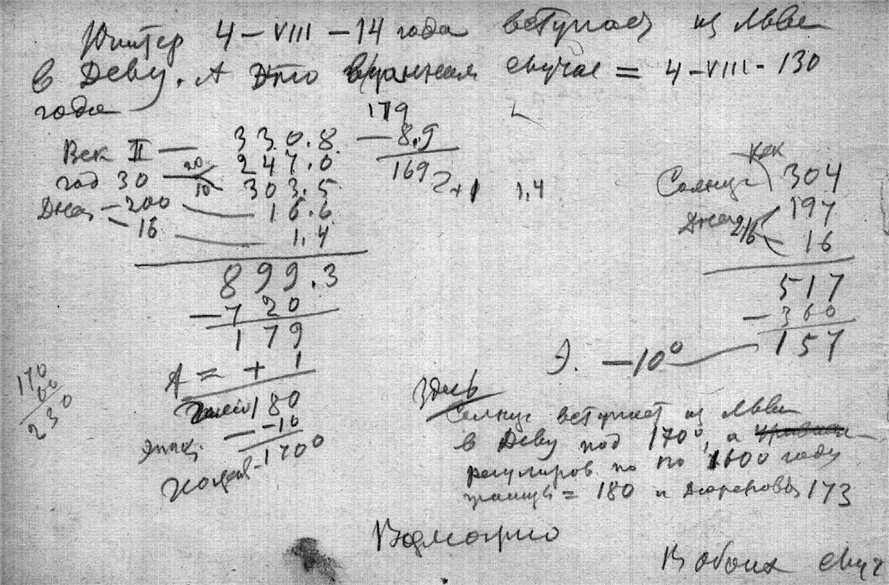 Юпитер 4-VIII-14 года вступает из Льва
в Деву. А это в данном случае = 4-VIII-130
года
179
Век II — 330.8 — 8.9
20 247.0 169
год 30 10 303.5 2+1 1,4
Дней — 200 16.6
— 16 1.4
899.3
— 720
179
A = + 1
180
— -10
-170°
170
60
230
век
Солнце 304
Дней 197
216 16
517
— 360
157
Э. — 10°
Здесь
Солнце вступает из Льва
в Деву под 170°, а
по 1600 году
границы = 180 и Дюреровы 173
В обоих случ